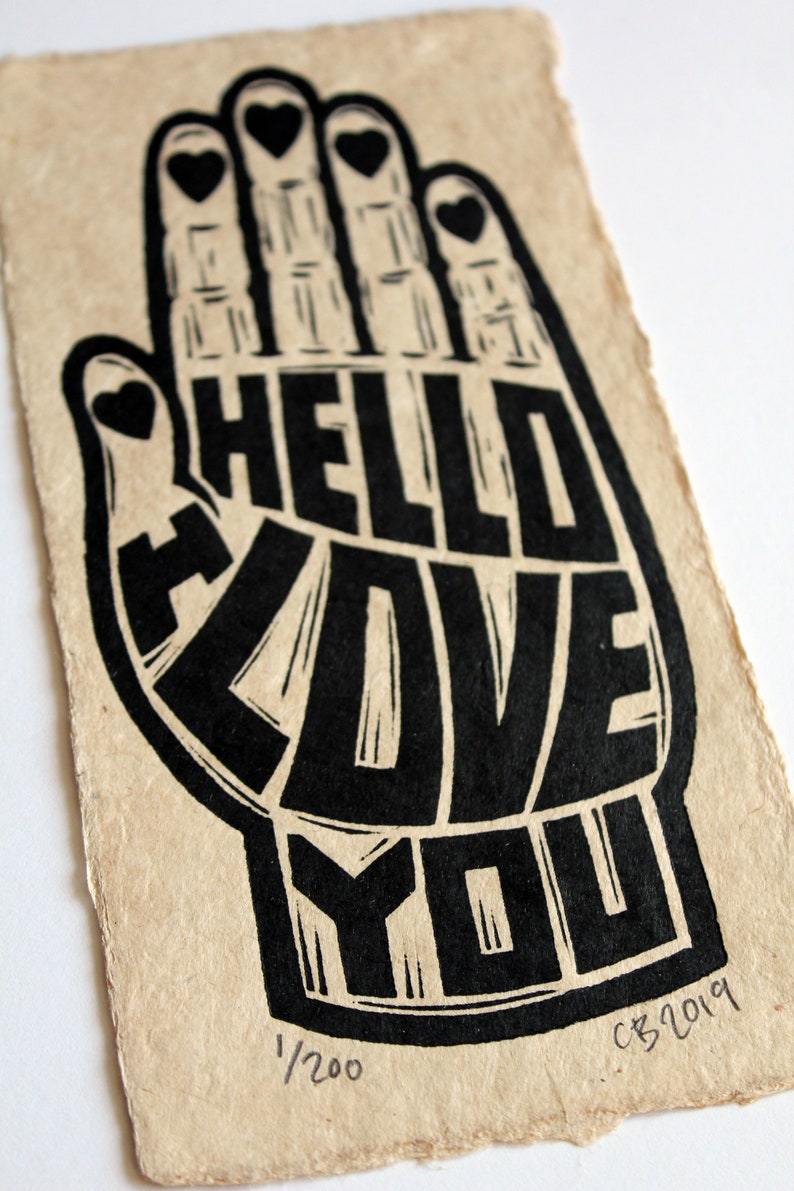 HELLO
I LOVE
YOU
1/200 CB 2019